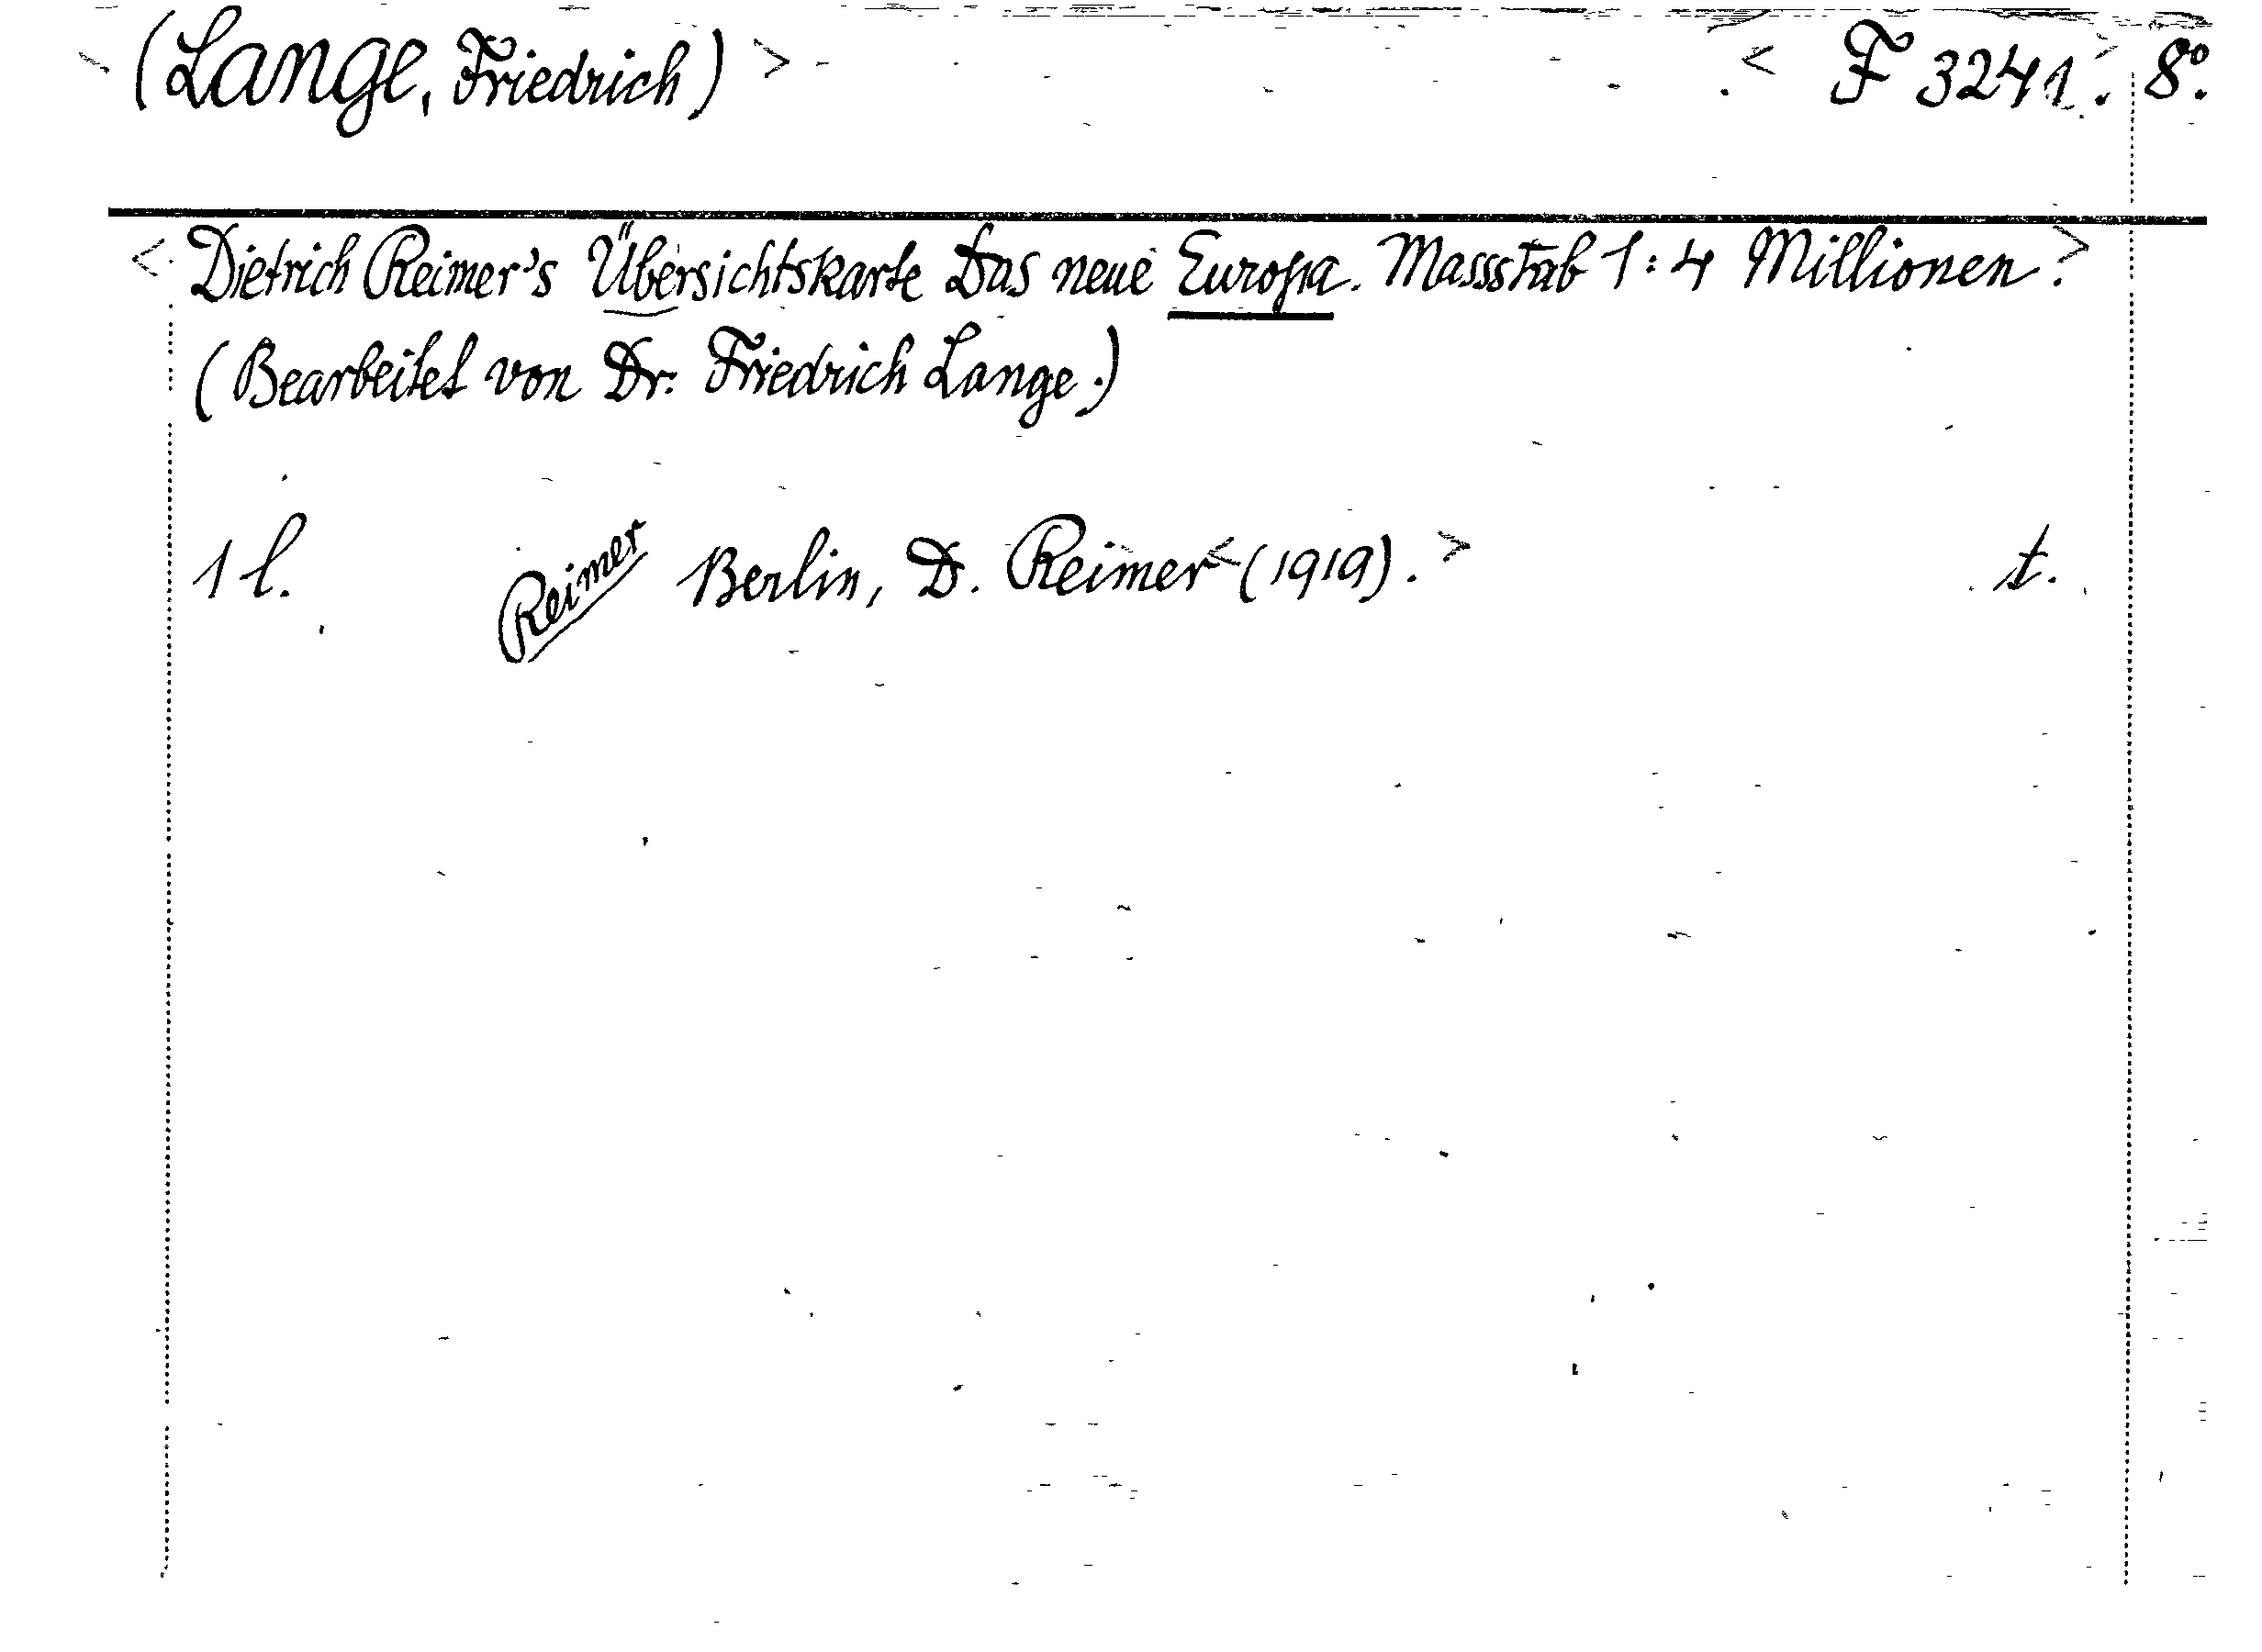 (Lange, Friedrich) > < F 3241. 8°.
< Dietrich Reimer's Übersichtskarte Das neue Europa. Massstab 1:4 Millionen. >
(Bearbeitet von Dr. Friedrich Lange.)
1 l. Reimer Berlin, D. Reimer < (1919). > t.